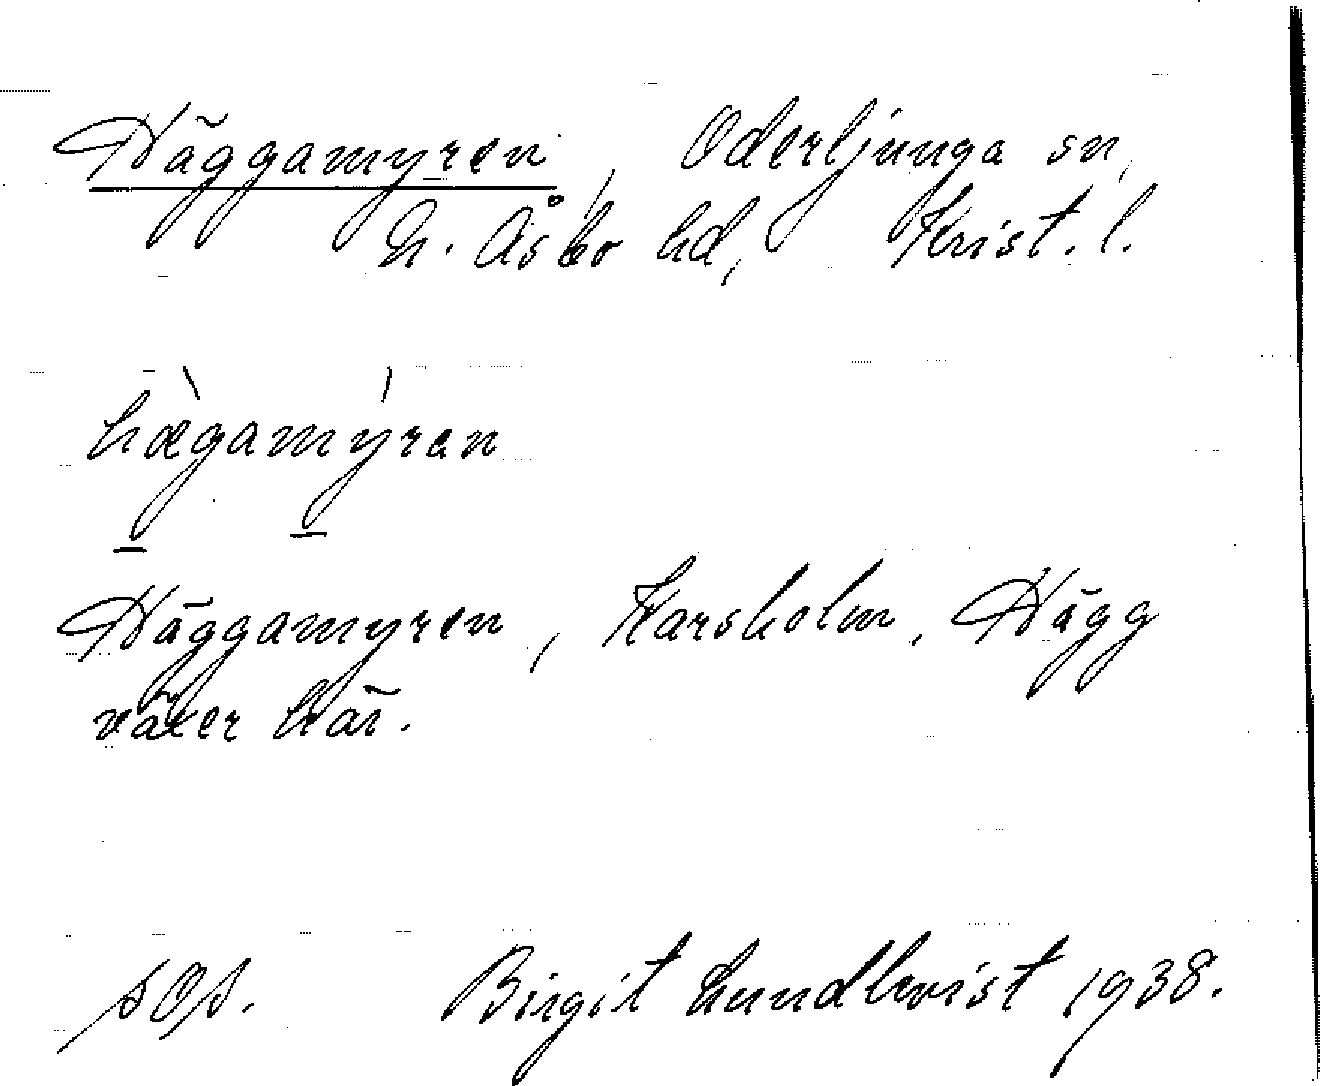 Häggamyren, Oderljunga sn,
N. Åsbo hd, Krist. l.
hægamyren
Häggamyren, Karsholm. Hägg
växer här.
Birgit Lundkvist 1938.